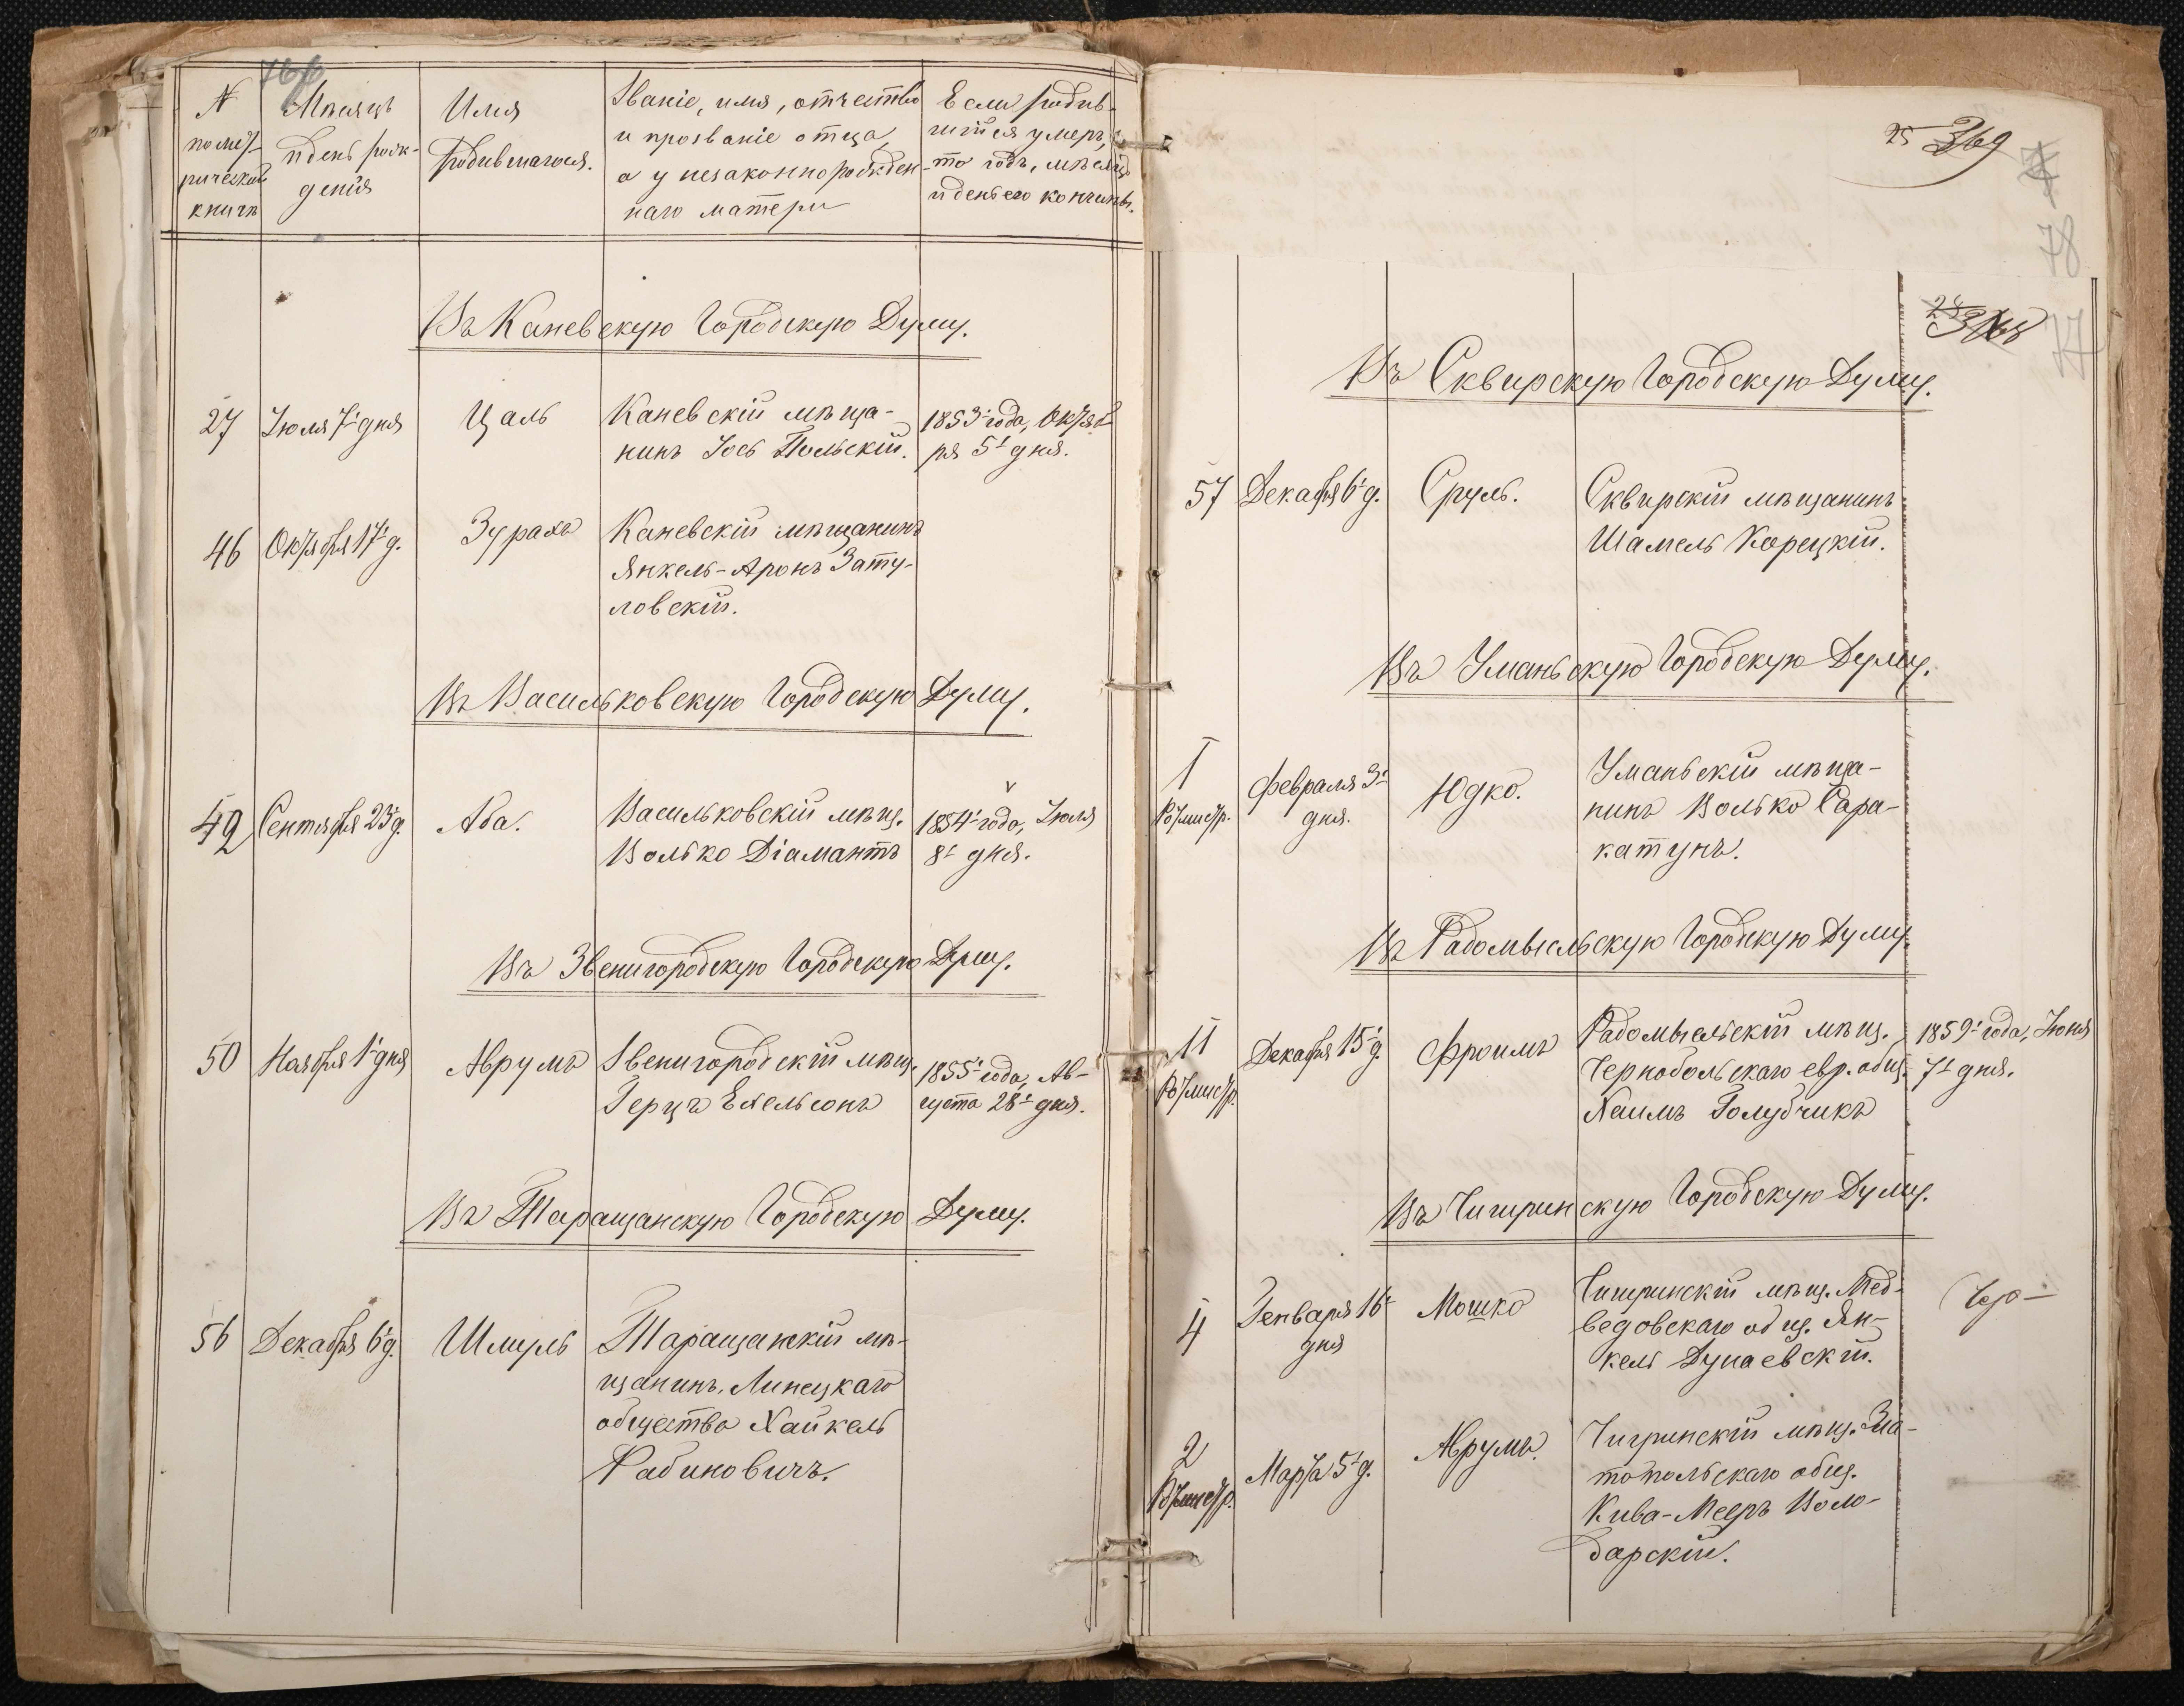 N
по мет-
рической
книгѣ
Мѣсяцъ
и день рож-
денія
Имя
родившагося.
Званіе, имя, отчество
и прозваніе отца,
а у незаконнорожден-
наго матери
Если родив-
шійся умеръ,
то годъ, мѣсяцъ
и день его кончины.
Въ Каневскую Городскую Думу.
27 Іюля 7 дня Цаль Каневскій мѣща- 1853 года, Октяб-
нинъ Іось Польскій. ря 5 дня.
46 Октября 17 д. Зурахъ Каневскій мѣщанинъ
Янкель-Аронъ Зату-
ловскій.
Въ Васильковскую Городскую Думу.
49 Сентября 23 д. Аба. Васильковскій мѣщ. 1854 года, Іюля
Волько Діамантъ 8 дня.
Въ Звенигородскую Городскую Думу.
50 Ноября 1 дня Аврумъ Звенигородскій мѣщ. 1855 года, Ав-
Герцъ Ехельсонъ густа 28 дня.
Въ Таращанскую Городскую Думу.
56 Декабря 6 д. Шмуль Таращанскій мѣ-
щанинъ, Линецкаго
общества Хайкель
Рабиновичъ.
25 369
78
77
Въ Сквирскую Городскую Думу.
57 Декабря 6 д. Сруль. Сквирскій мѣщанинъ
Шамель Корецкій.
Въ Уманьскую Городскую Думу.
1 Февраля 3 Юдко. Уманьскій мѣща-
дня. нинъ Волько Сара-
катунъ.
Въ Радомысльскую Городскую Думу
11 Декабря 15 д. Фроимъ Радомысльскій мѣщ. 1859 года, Іюня
Чернобольскаго евр. общ. 7 дня.
Хаимъ Голубчикъ
Въ Чигиринскую Городскую Думу.
4 Генваря 16 Мошко Чигиринскій мѣщ. Мед-
дня ведовскаго общ. Ян-
кель Дунаевскій.
2 Марта 5 д. Аврумъ. Чигринскій мѣщ. Зла-
топольскаго общ.
Кива-Мееръ Воло-
дарскій.